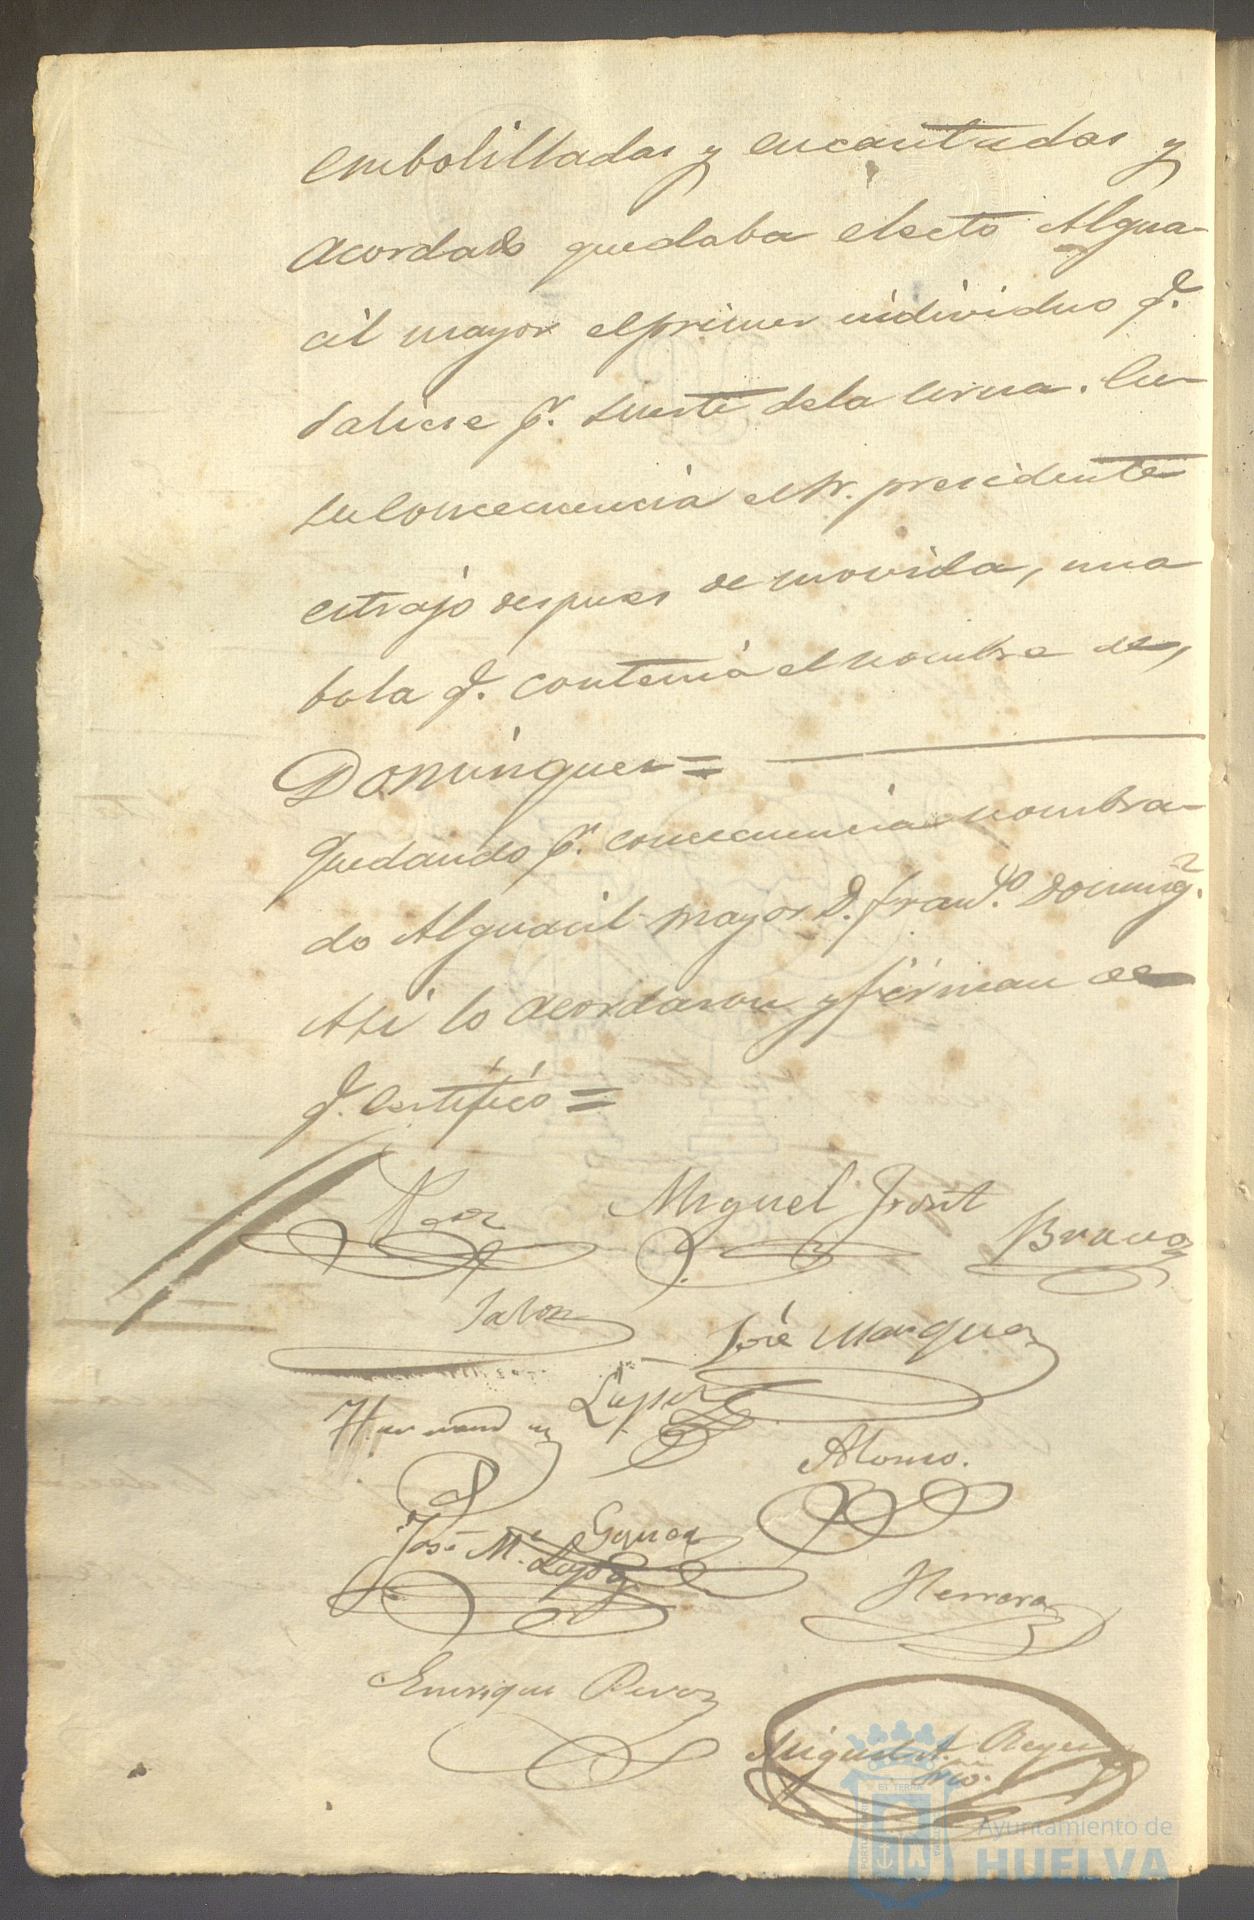 embolilladas y encantadas y
acordado quedaba electo Algua-
cil mayor el primer individuo q.e
saliese p.r suerte dela urna. En
su consecuencia el Sr. presidente
estrajo despues de movida, una
bola q.e contenia el nombre de,
Dominguez =
Quedando p.r consecuencia nombra-
do Alguacil mayor D. Fran.co Doming.z
Asi lo acordaron y firman de
q.e certifico =
Miguel
Bravo
José Marquez
Lopez
Hernandez
Alonso.
José M.a Lopez
Herrera
Enrique Perez
Miguel A.
Srio.
ET TERRA
Ayuntamiento de
HUELVA